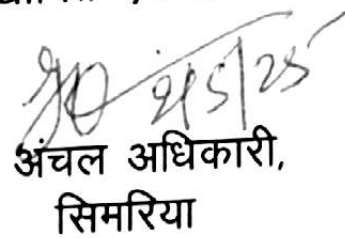 2/5/25
अंचल अधिकारी,
सिमरिया